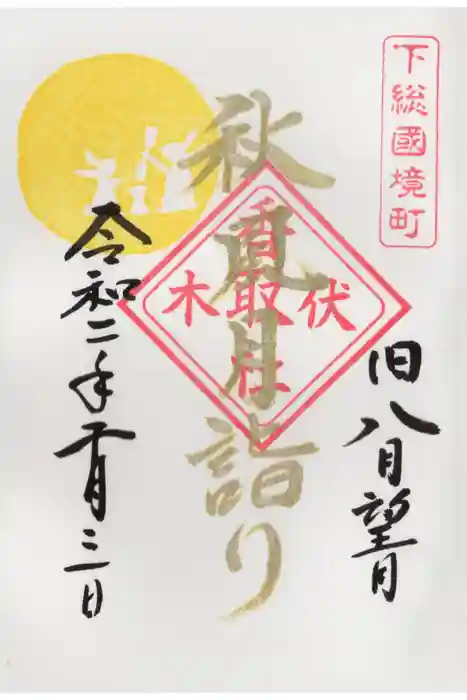 下総國境町
旧八月望月
秋月詣り
伏木
香取社
令和二年十月三日